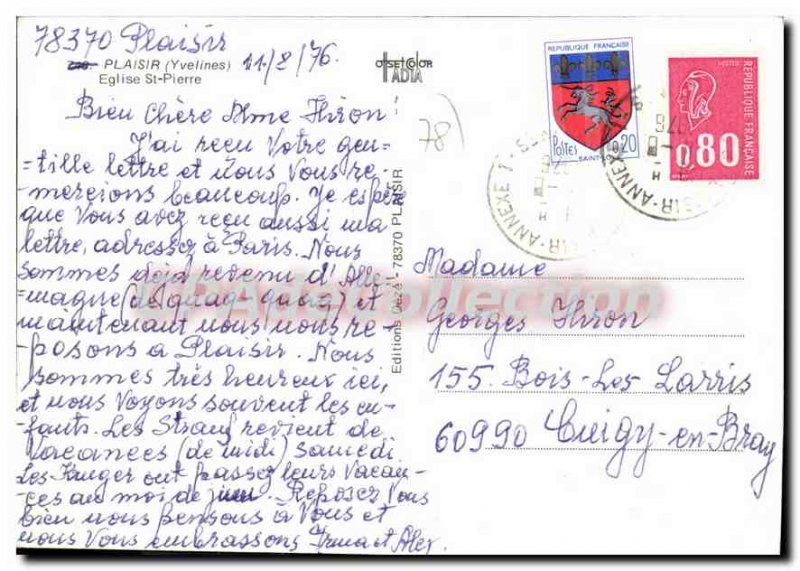 78370 Plaisir
PLAISIR (Yvelines) 11/8/76.
Eglise St-Pierre
OFFSET COLOR
IADIA
Bien Chère Mme Thiron!
J'ai reçu Votre gen-
=tille lettre et nous Vous re-
merçions beaucoup. Je espèr
que Vous avez reçu aussi ma
lettre, adressez à Paris. Nous
sommes déjà revenu d'Alle-
=magne et
maintenant nous nous re-
=posons à Plaisir. Nous
sommes très heureux ici,
et nous Voyons souvent les en-
-fants. Les revient de
Vacances (de midi) samedi.
Les ont passez leurs Vacan-
-ces au moi de juin. Reposez Vous
bien nous pensons à Vous et
nous Vous embrassons Irma et Alex.
78)
Editions Cézé - 78370 PLAISIR
REPUBLIQUE FRANÇAISE
Postes 0,20
SAINT-LO
POSTES
REPUBLIQUE FRANÇAISE
0,80
ANNEXE 1
PLAISIR-ANNEXE
Madame
Georges Thiron
155. Bois-Les Larris
60990 Cuigy-en-Bray
CPAdecollection